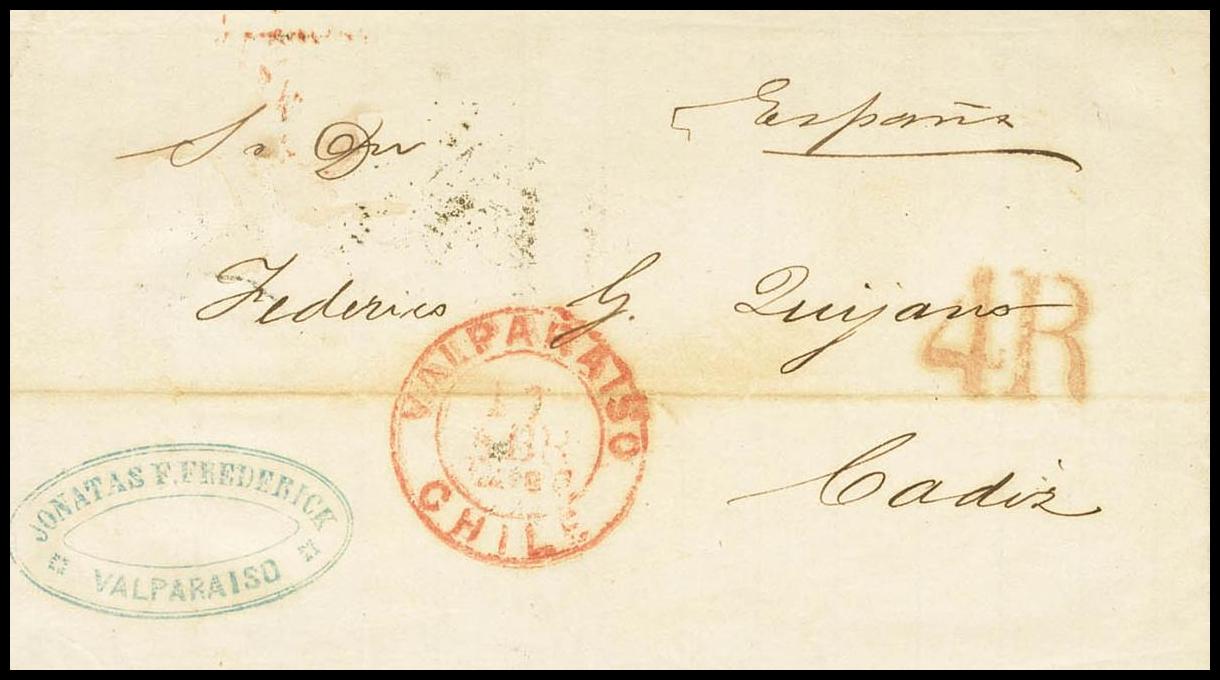 España
Sr Dn
Federico G. Quijano
4R
Cadiz
VALPARAISO
17
ABR
CHILE
JONATAS F. FREDERICK
VALPARAISO